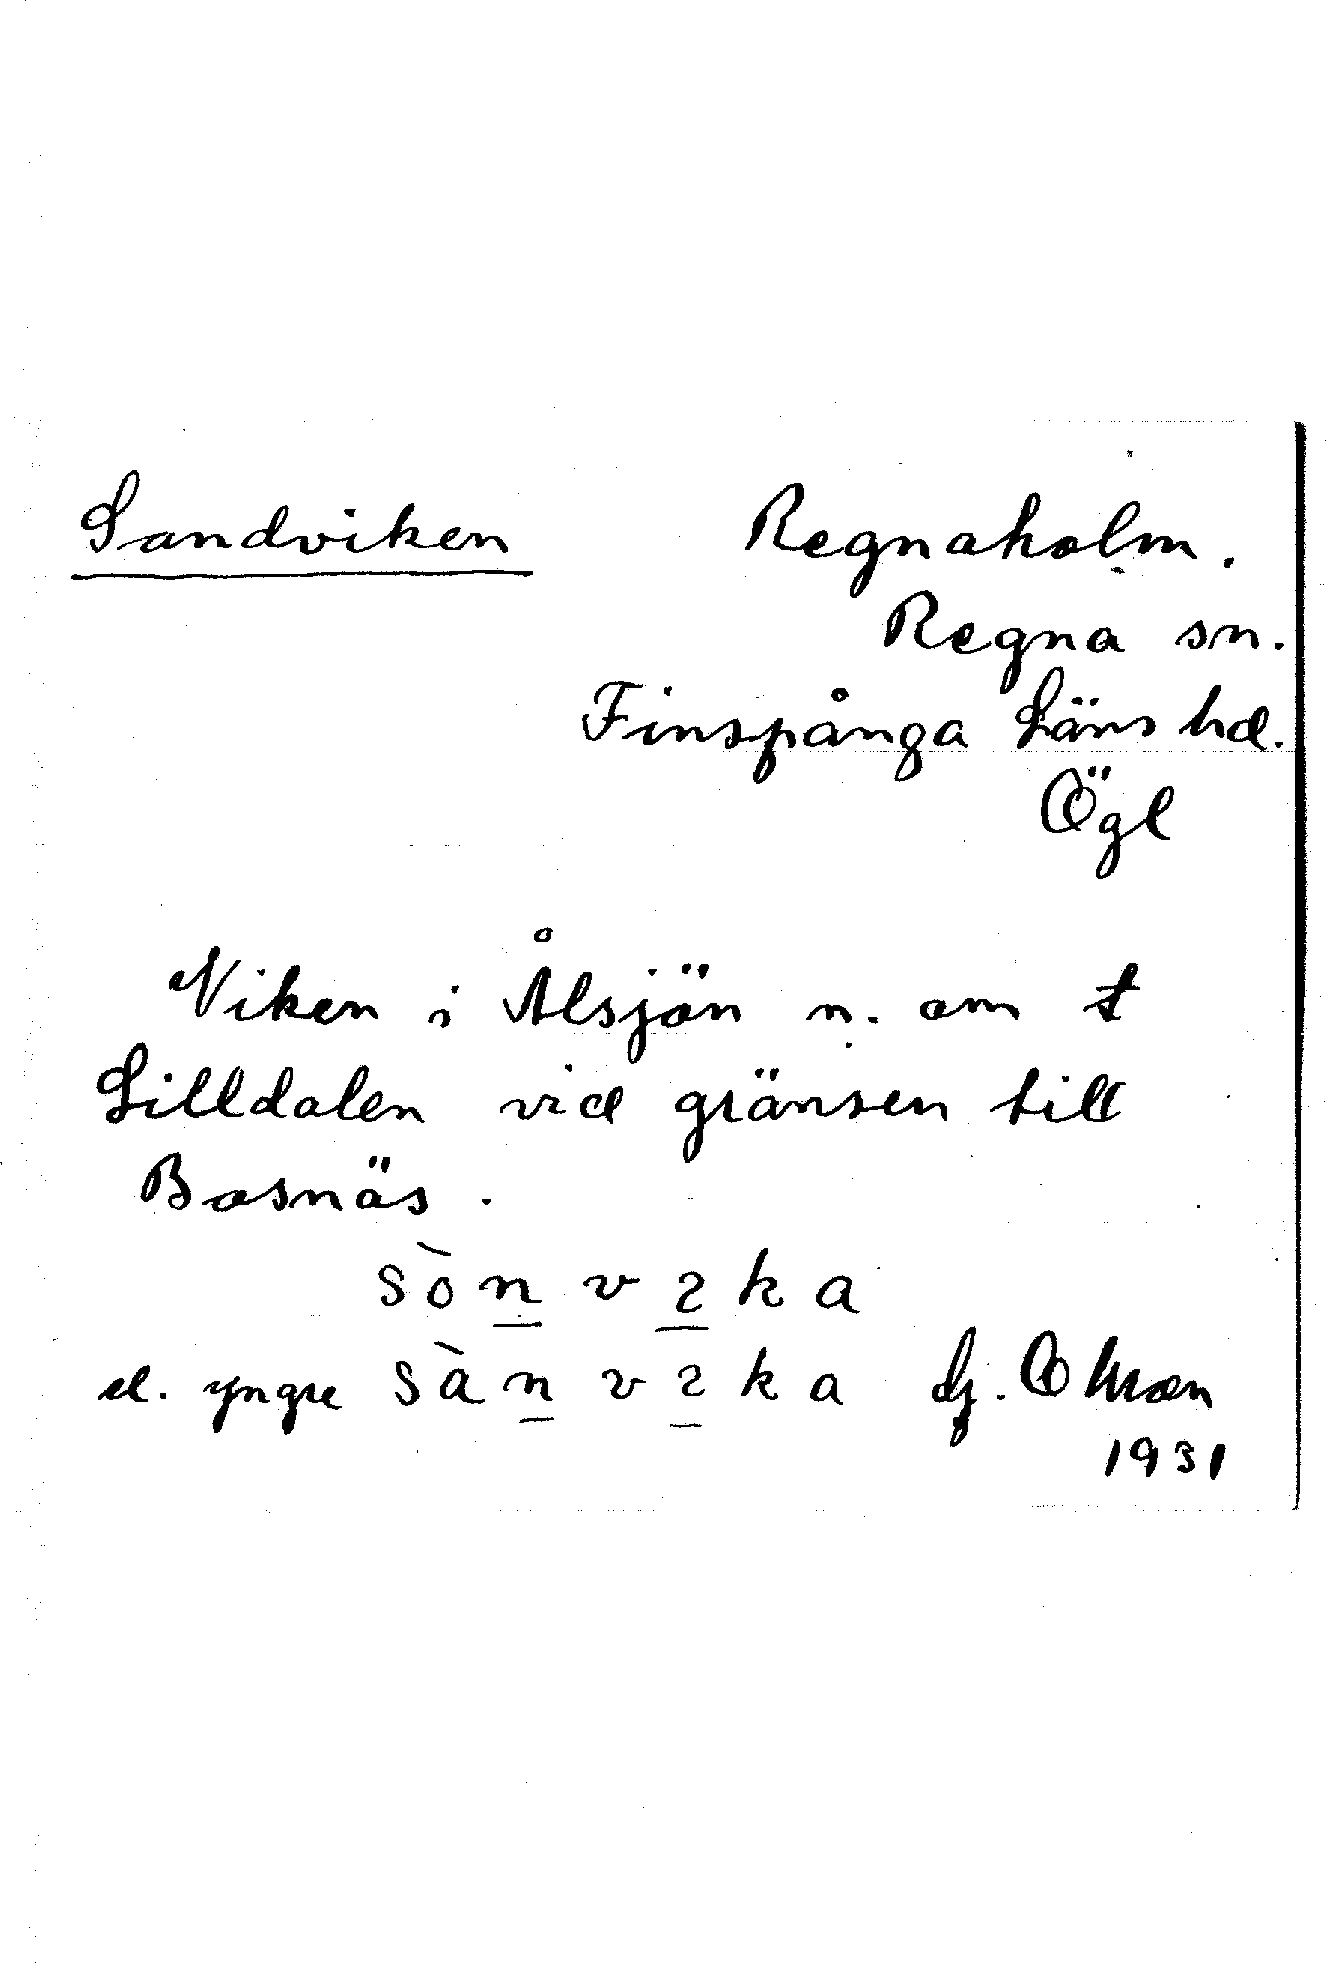 Sandviken Regnaholm.
Regna sn.
Finspånga Läns hd.
Ögl
Viken i Ålsjön n. om t
Lilldalen vid gränsen till
Bosnäs.
sònvıka
el. yngre sànvıka
1931